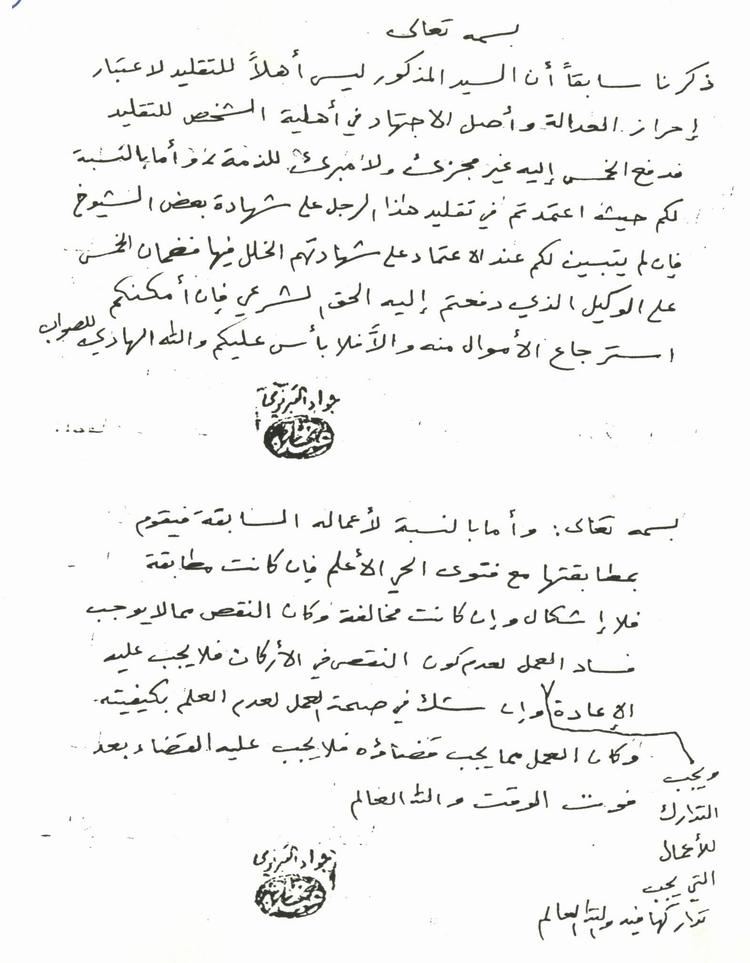 بسمه تعالى
ذكرنا سابقاً أن السيد المذكور ليس أهلاً للتقليد لاعتبار
إحراز العدالة وأصل الاجتهاد في أهلية الشخص للتقليد
فدفع الخمس إليه غير مجزئ ولا مبرئ للذمة وأما بالنسبة
لكم حيث اعتمدتم في تقليد هذا الرجل على شهادة بعض الشيوخ
فإن لم يتبين لكم عند الاعتماد على شهادتهم الخلل فيها فضمان الخمس
على الوكيل الذي دفعتم إليه الحق الشرعي فإن أمكنكم
استرجاع الأموال منه وإلاَّ فلا بأس عليكم والله الهادي للصواب
جواد التبريزي
بسمه تعالى: وأما بالنسبة لأعماله السابقة فيقوم
بمطابقتها مع فتوى الحي الأعلم فإن كانت مطابقة
فلا إشكال وإن كانت مخالفة وكان النقص مما لا يوجب
فساد العمل لعدم كون النقص في الأركان فلا يجب عليه
الإعادة وإن شك في صحة العمل لعدم العلم بكيفيته
وكان العمل مما يجب قضاؤه فلا يجب عليه القضاء بعد
فوت الوقت والله العالم
ويجب
التدارك
للأعمال
التي يجب
تداركها فيه والله العالم
جواد التبريزي